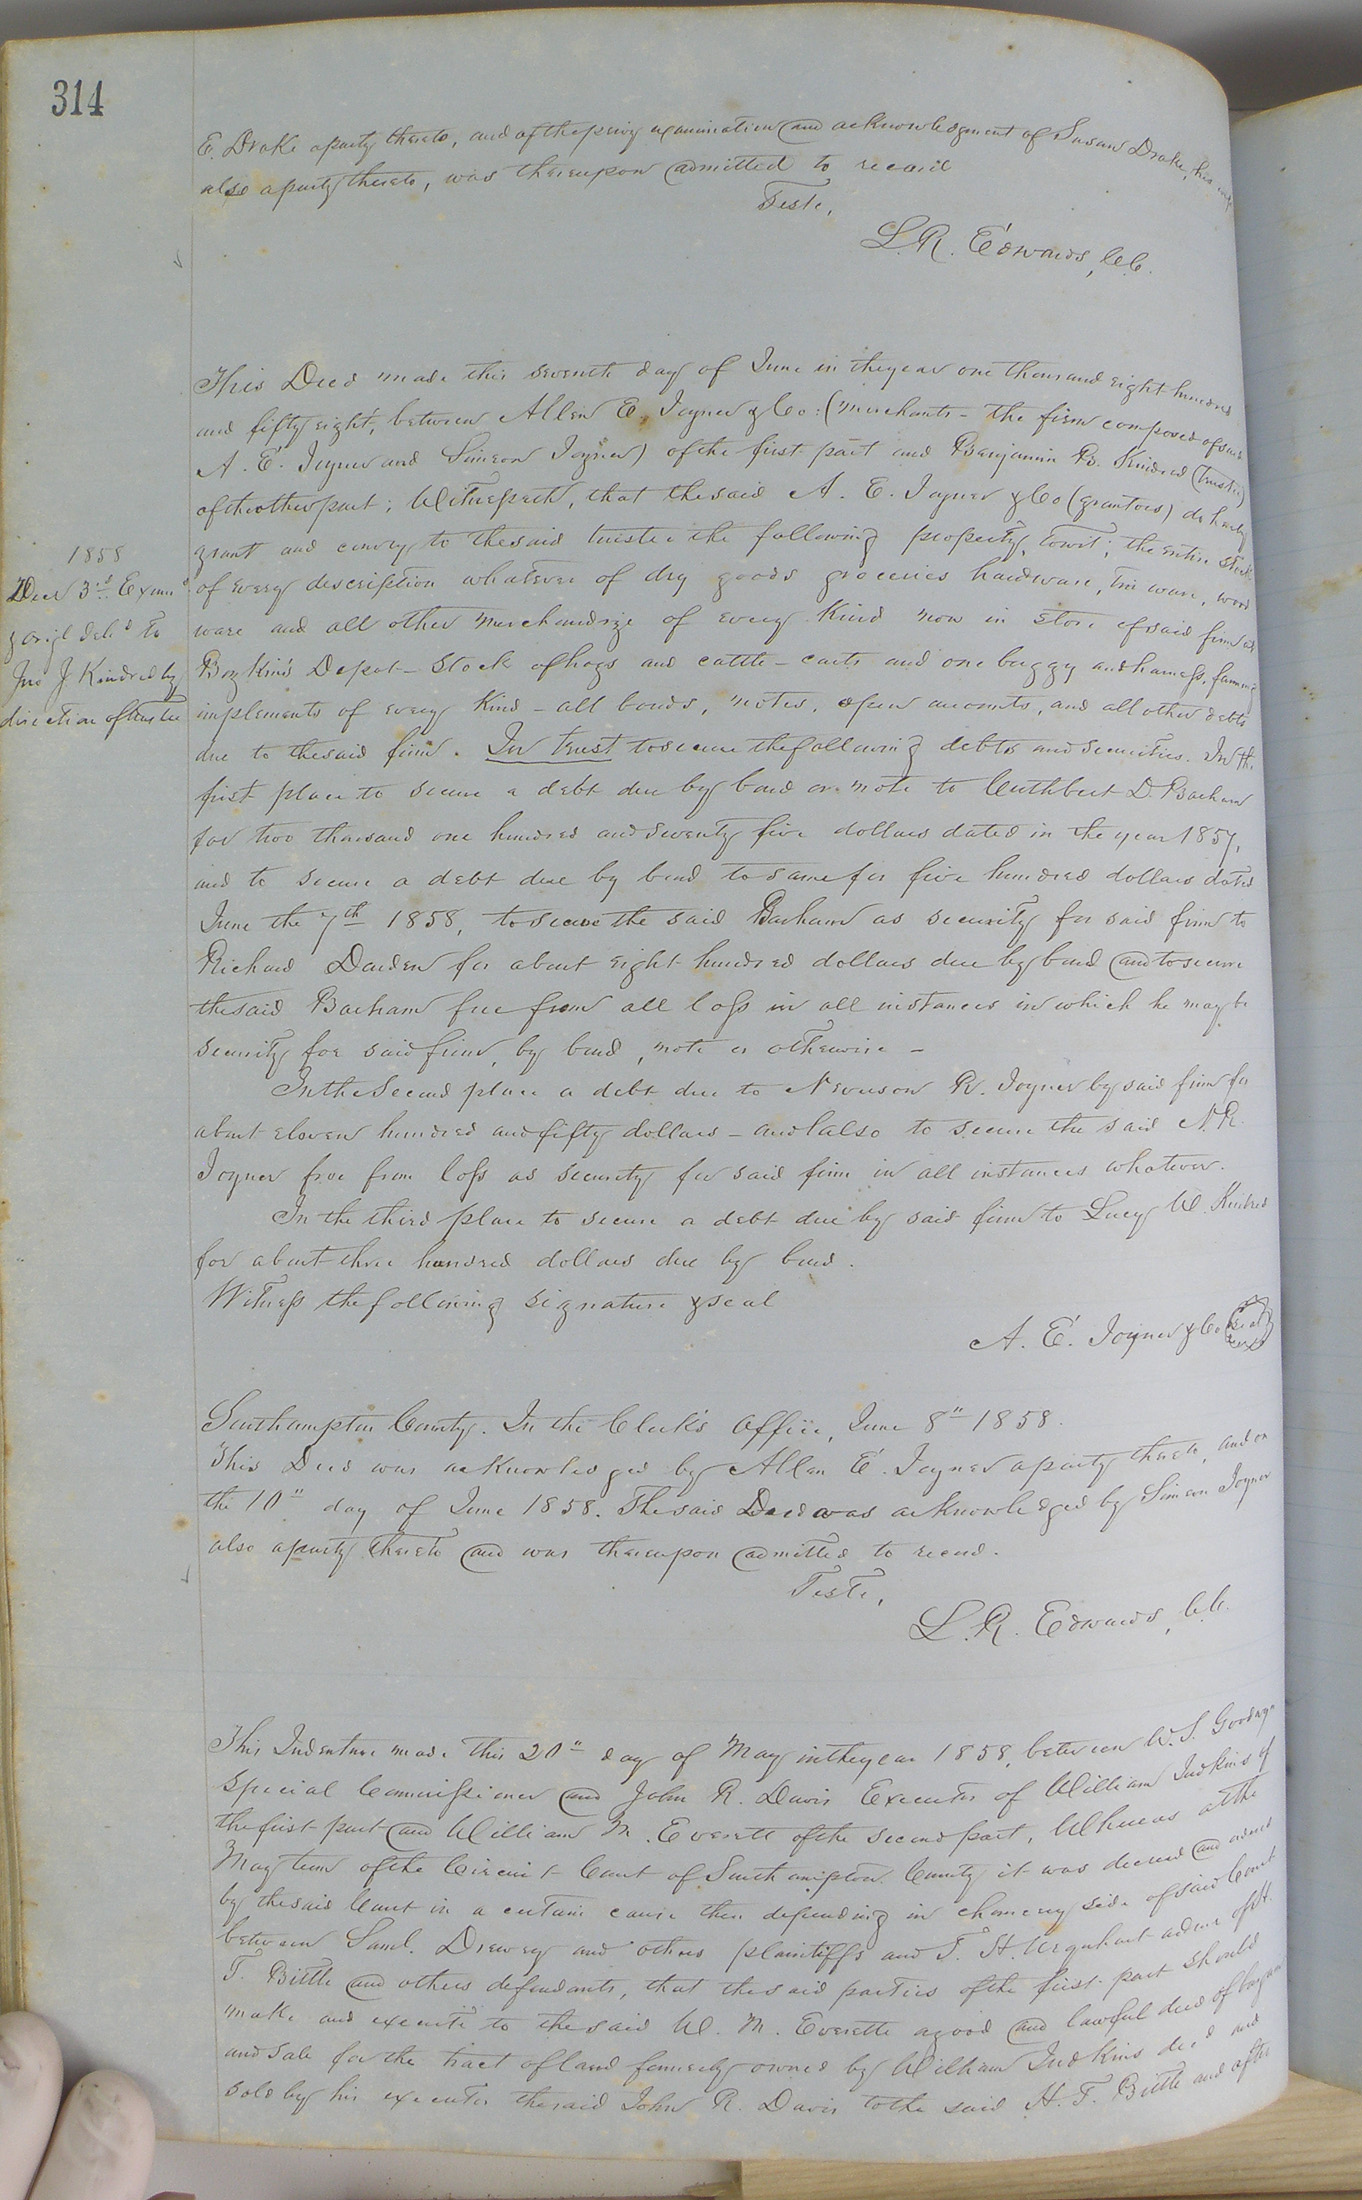 314
E. Drake a party thereto, and of the privy examination and acknowledgment of Susan Drake, his wife
also a party thereto, was thereupon admitted to record
Teste,
L. R. Edwards, C.C.
This Deed made this seventh day of June in the year one thousand eight hundred
and fifty eight, between Allen E. Joyner & Co: (merchants - the firm composed of said
A. E. Joyner and Simeon Joyner) of the first part and Benjamin B. Kindred (trustee)
of the other part; Witnesseth, that the said A. E. Joyner & Co (grantors) do hereby
grant and convey to the said trustee the following property, towit; the entire stock
of every description whatever of dry goods groceries hardware, tin ware, wood
ware and all other merchandize of every kind now in store of said firm at
Boykins Depot - Stock of hogs and cattle - carts and one buggy and harness, farming
implements of every kind - all bonds, notes, open accounts, and all other debts
due to the said firm. In trust to secure the following debts and securities. In the
first place to secure a debt due by bond or note to Cuthbert D. Barham
for two thousand one hundred and seventy five dollars dated in the year 1857,
and to secure a debt due by bond to same for five hundred dollars dated
June the 7th 1858, to secure the said Barham as security for said firm to
Richard Darden for about eight hundred dollars due by bond and to secure
the said Barham free from all loss in all instances in which he may be
security for said firm, by bond, note or otherwise -
In the Second place a debt due to Newsom R. Joyner by said firm for
about eleven hundred and fifty dollars - and also to secure the said N. R.
Joyner free from loss as security for said firm in all instances whatever.
In the third place to secure a debt due by said firm to Lucy W. Kindred
for about three hundred dollars due by bond.
Witness the following signature & seal
A. E. Joyner & Co (Seal)
1858
Decr 3rd Exmd
& origl deld to
Jno J Kindred by
direction of trustee
Southampton County. In the Clerk's Office, June 8" 1858.
This Deed was acknowledged by Allen E. Joyner a party thereto, and on
the 10" day of June 1858. The said Deed was acknowledged by Simeon Joyner
also a party thereto and was thereupon admitted to record.
Teste,
L. R. Edwards, C.C.
This Indenture made this 20" day of May in the year 1858, between W. S. Goodwyn
Special Commissioner and John R. Davis Executor of William Judkins of
the first part and William M. Everett of the second part, Whereas at the
May term of the Circuit Court of Southampton County it was decreed and ordered
by the said Court in a certain cause then depending in chancery side of said Court
between Saml. Drewery and others plaintiffs and T. H. Urquhart admr of H.
T. Bittle and others defendants, that the said parties of the first part should
make and execute to the said W. M. Everette a good and lawful deed of bargain
and sale for the tract of land formerly owned by William Judkins decd and
sold by his executor the said John R. Davis to the said H. T. Bittle and after